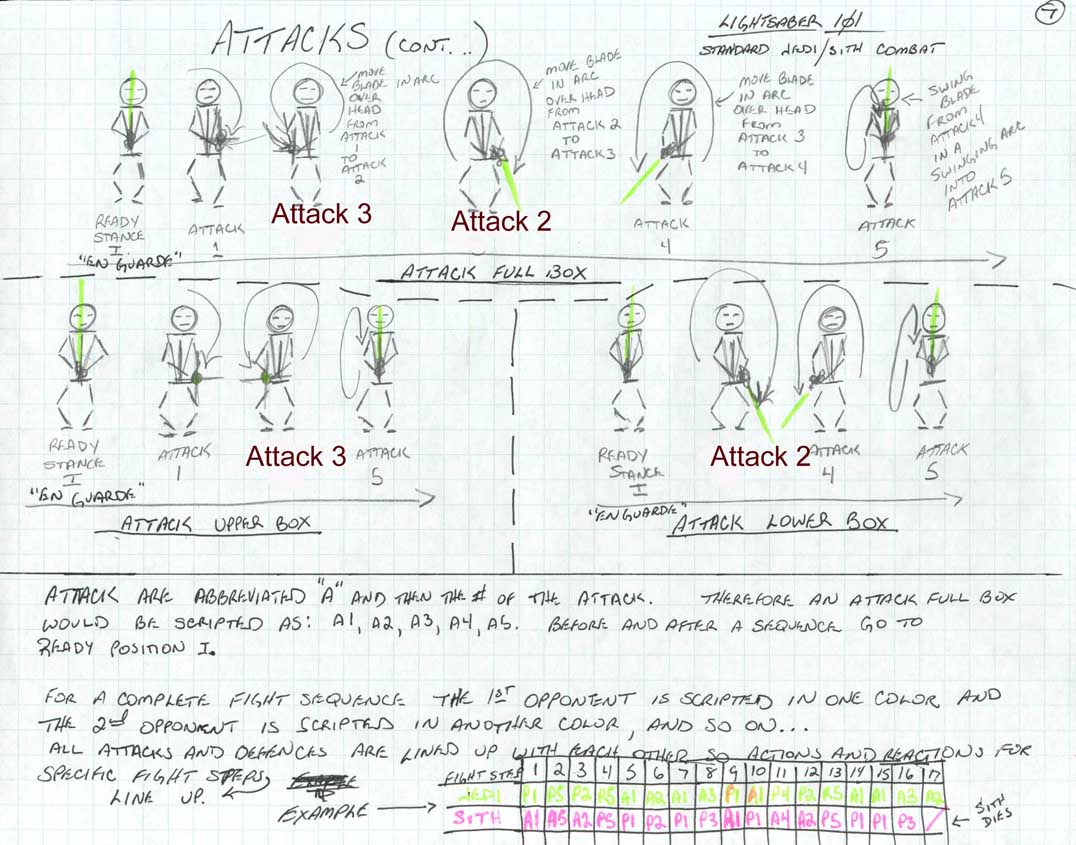 7
ATTACKS (CONT...)
LIGHTSABER 101
STANDARD JEDI/SITH COMBAT
MOVE
BLADE IN ARC
OVER
HEAD
FROM
ATTACK
1
TO
ATTACK
2
MOVE BLADE
IN ARC
OVER HEAD
FROM
ATTACK 2
TO
ATTACK 3
MOVE BLADE
IN ARC
OVER HEAD
FROM
ATTACK 3
TO
ATTACK 4
SWING
BLADE
FROM
ATTACK 4
IN A
SWINGING ARC
INTO
ATTACK 5
READY
STANCE
I
"EN GUARDE"
ATTACK
1
Attack 3
Attack 2
ATTACK
4
ATTACK
5
ATTACK FULL BOX
READY
STANCE
I
"EN GUARDE"
ATTACK
1
Attack 3
ATTACK
5
ATTACK UPPER BOX
READY
STANCE
I
"EN GUARDE"
Attack 2
ATTACK
4
ATTACK
5
ATTACK LOWER BOX
ATTACK ARE ABBREVIATED "A" AND THEN THE # OF THE ATTACK. THEREFORE AN ATTACK FULL BOX
WOULD BE SCRIPTED AS: A1, A2, A3, A4, A5. BEFORE AND AFTER A SEQUENCE GO TO
READY POSITION I.
FOR A COMPLETE FIGHT SEQUENCE THE 1ST OPPONENT IS SCRIPTED IN ONE COLOR AND
THE 2nd OPPONENT IS SCRIPTED IN ANOTHER COLOR, AND SO ON...
ALL ATTACKS AND DEFENCES ARE LINED UP WITH EACH OTHER SO ACTIONS AND REACTIONS FOR
SPECIFIC FIGHT STEPS
LINE UP.
EXAMPLE
FIGHT STEP 1 2 3 4 5 6 7 8 9 10 11 12 13 14 15 16 17
JEDI P1 P5 P2 R5 A1 A2 A1 A3 P1 A1 P4 P2 R5 A1 A1 A3 A2
SITH A1 A5 A2 P5 P1 P2 P1 P3 A1 P1 A4 A2 P5 P1 P1 P3 /
SITH
DIES